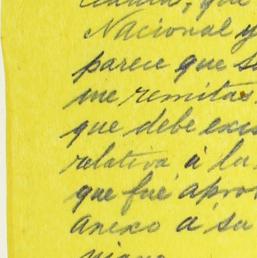 que
Nacional y
parece que s
me remitas
que debe exis
relativa á la
que fué apro
anexo á su